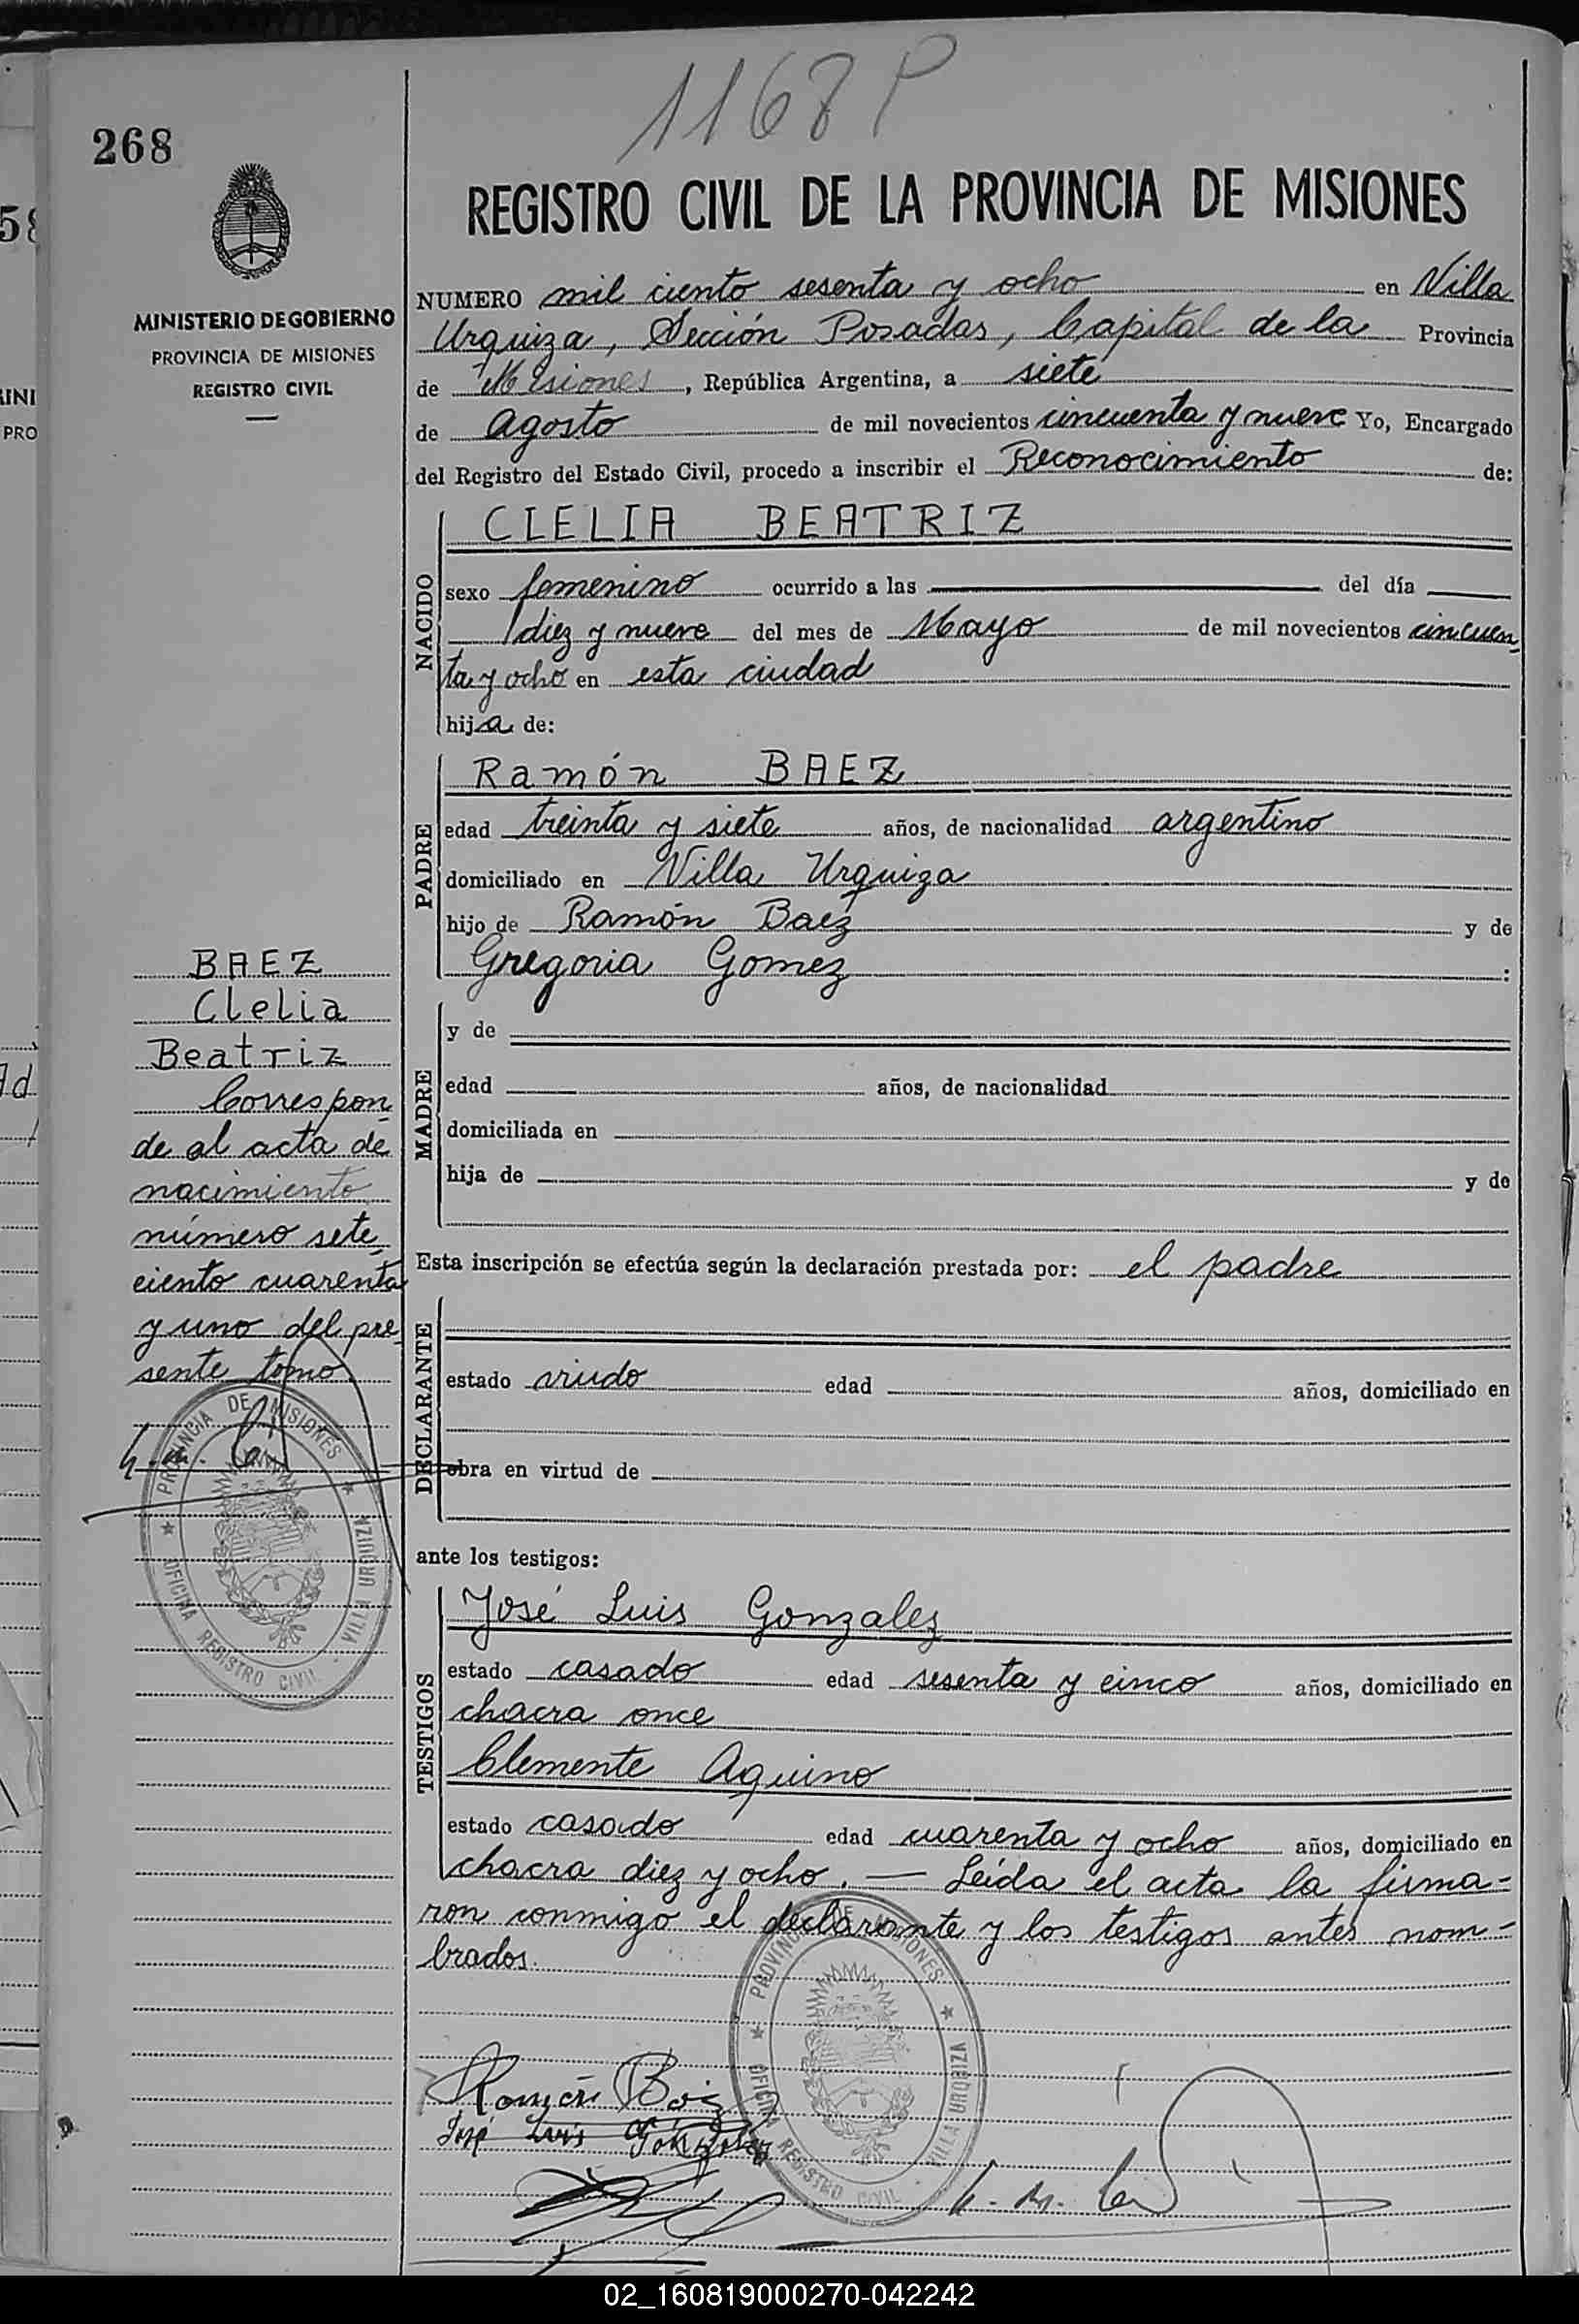 1168 P
268
REGISTRO CIVIL DE LA PROVINCIA DE MISIONES
MINISTERIO DE GOBIERNO
PROVINCIA DE MISIONES
REGISTRO CIVIL
NUMERO mil ciento sesenta y ocho en Villa
Urquiza, Sección Posadas, Capital de la Provincia
de Misiones, República Argentina, a siete
de agosto de mil novecientos cincuenta y nueve Yo, Encargado
del Registro del Estado Civil, procedo a inscribir el Reconocimiento de:
NACIDO
CLELIA BEATRIZ
sexo femenino ocurrido a las del día
diez y nueve del mes de Mayo de mil novecientos cincuen
ta y ocho en esta ciudad
hija de:
PADRE
Ramón BAEZ
edad treinta y siete años, de nacionalidad argentino
domiciliado en Villa Urquiza
hijo de Ramón Baez y de
Gregoria Gomez :
MADRE
y de
edad años, de nacionalidad
domiciliada en
hija de y de
Esta inscripción se efectúa según la declaración prestada por: el padre
DECLARANTE
estado viudo edad años, domiciliado en
obra en virtud de
ante los testigos:
TESTIGOS
José Luis Gonzalez
estado casado edad sesenta y cinco años, domiciliado en
chacra once
Clemente Aquino
estado casado edad cuarenta y ocho años, domiciliado en
chacra diez y ocho. — Leída el acta la firma-
ron conmigo el declarante y los testigos antes nom-
brados.
BAEZ
Clelia
Beatriz
Correspon
de al acta de
nacimiento
número sete
ciento cuarenta
y uno del pre
sente tomo
PROVINCIA DE MISIONES
OFICINA REGISTRO CIVIL - VILLA URQUIZA
PROVINCIA DE MISIONES
OFICINA REGISTRO CIVIL - VILLA URQUIZA
José Luis Gonzalez
58
INI
PRO
02_160819000270-042242